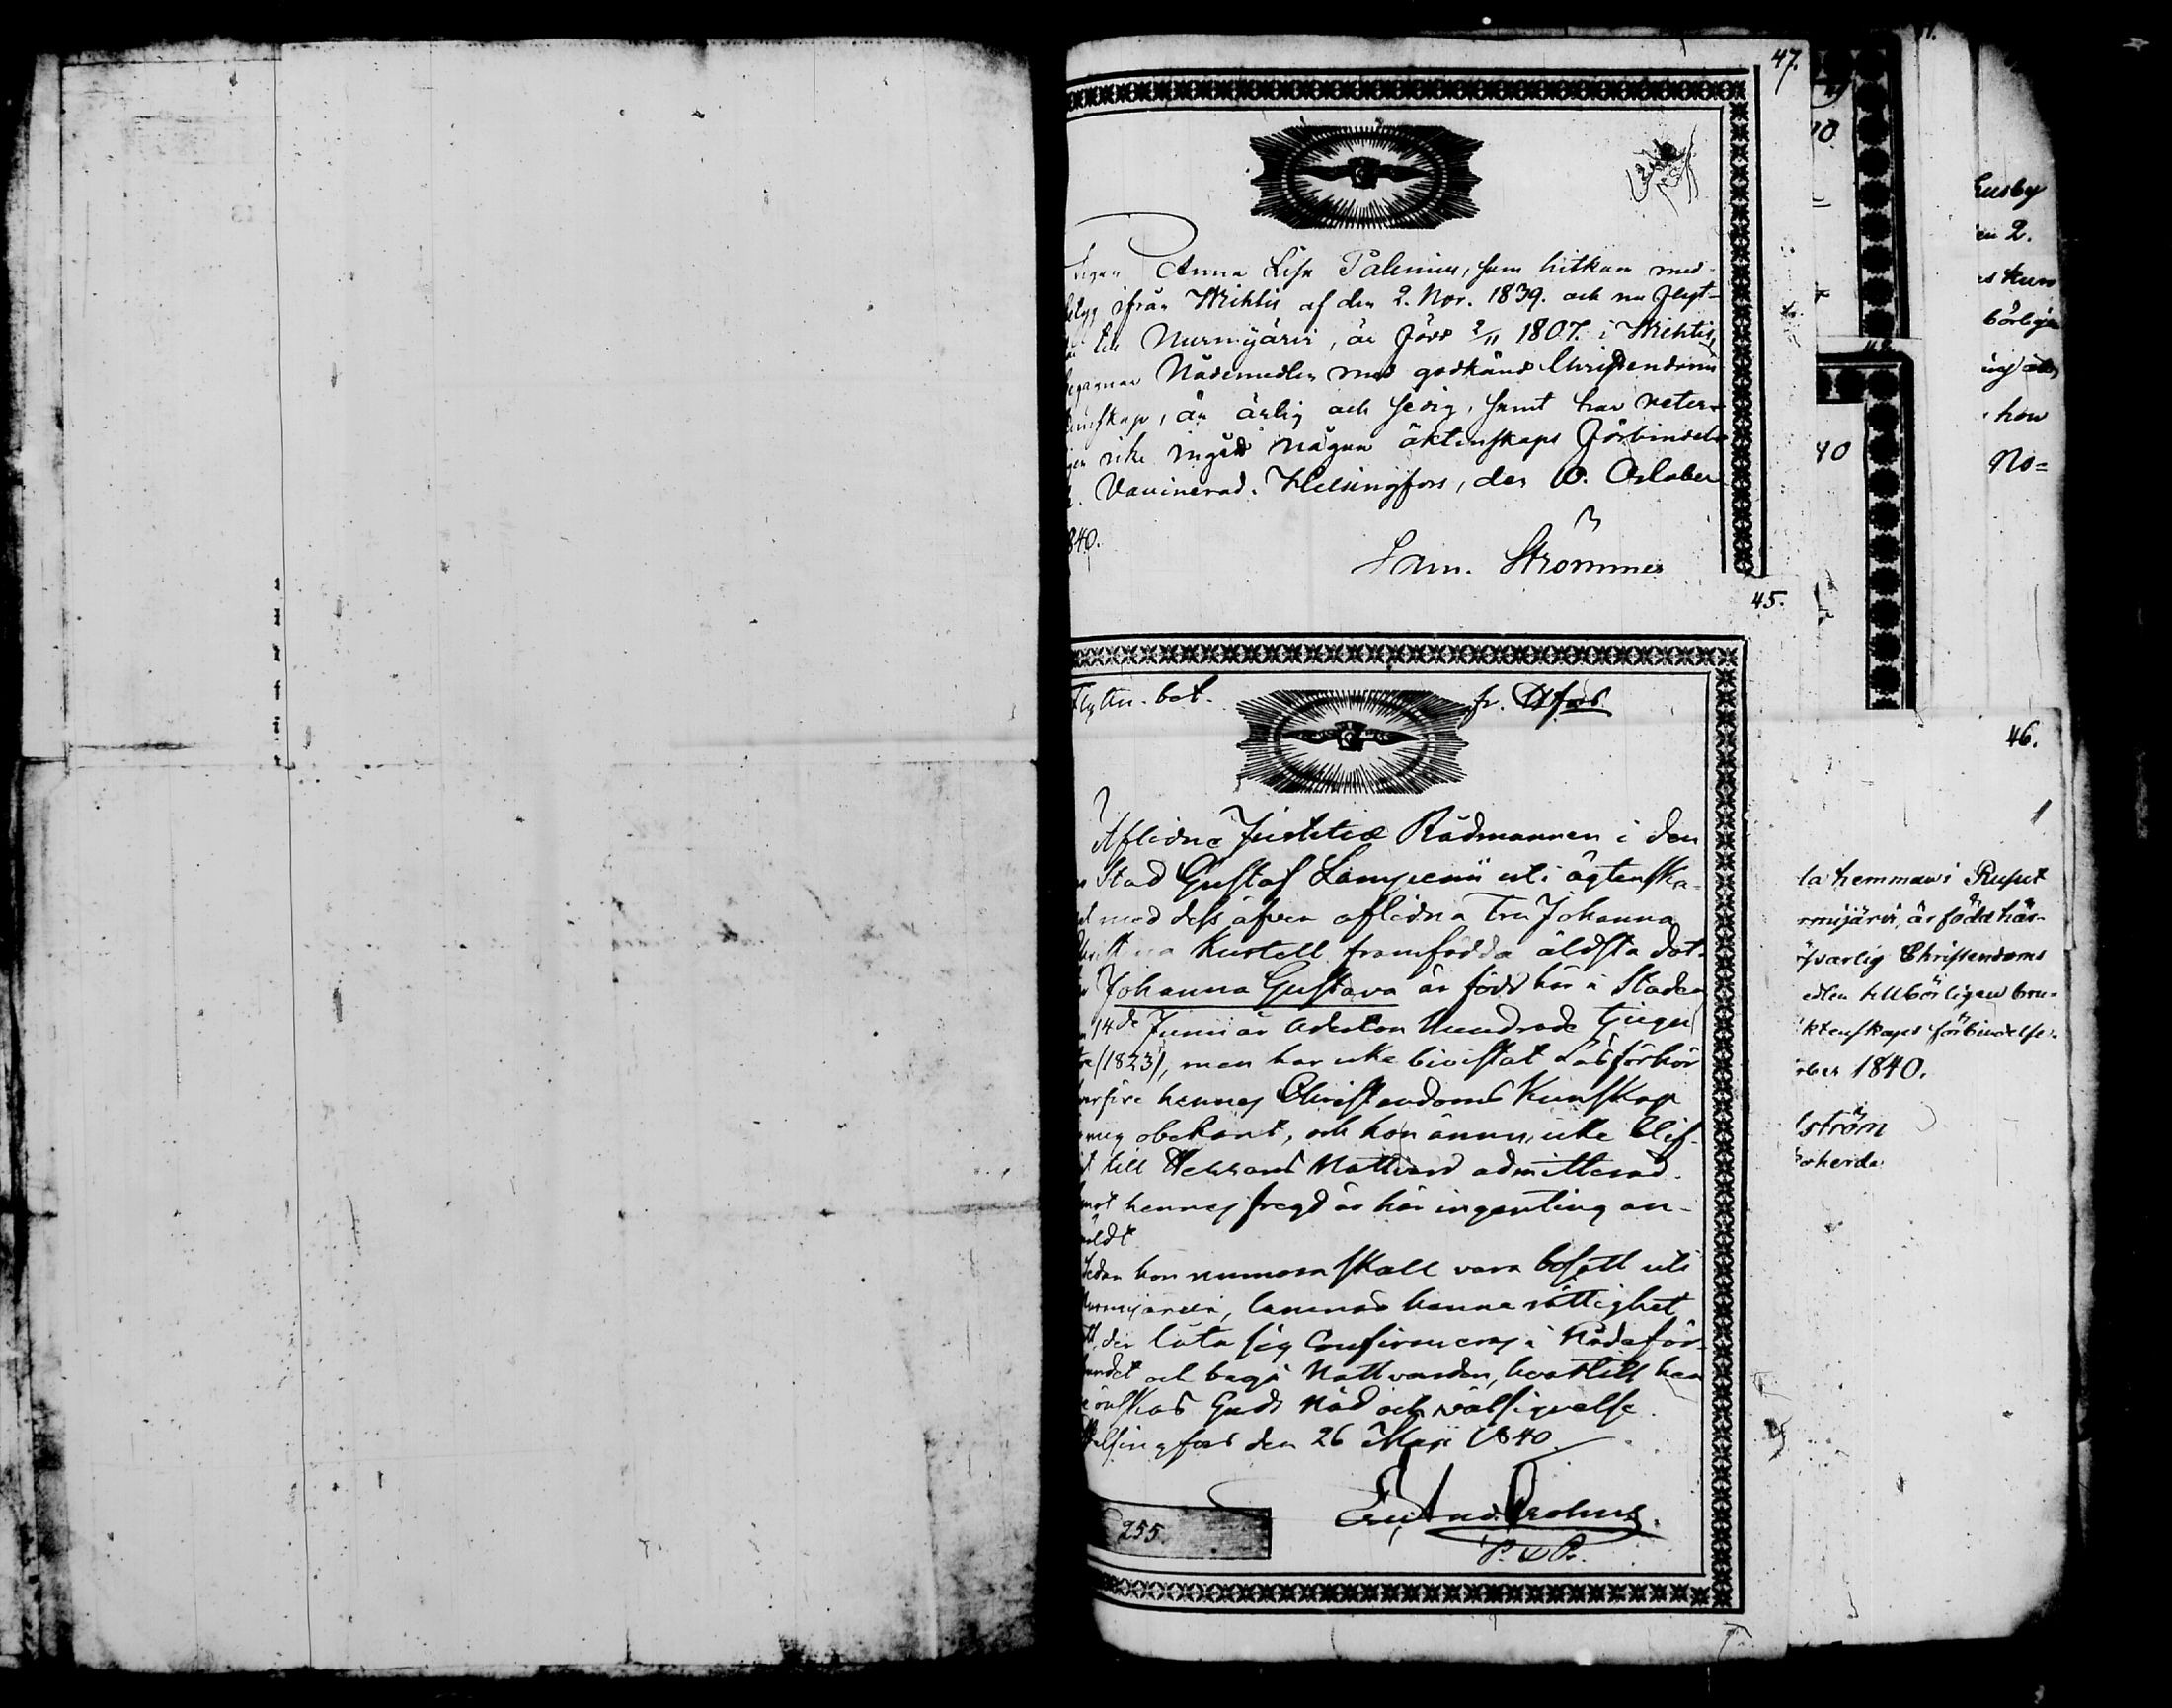 47.
Anna Lisa Palenius, som hitkom med
betyg ifrån Wichtis af den 2. Nov. 1839. och nu flyt-
till Nurmijärvi, är född 2/11 1807. i Wichtis,
begagnar Nådemedlen med godkänd Christendoms
kunskap, är ärlig och sedig, samt har veter-
ikke ingått någon äktenskaps förbindelse
Vaccinerad. Helsingfors, den 10. October
840.
Sam. Strömmer
45.
Flyttn. bet. fr. H:fors
Aflidne Justitiæ Rådmannen i den
Stad Gustaf Lampenii uti ägtenska-
med dess äfven aflidna Fru Johanna
Kurtell framfödda äldsta dot-
Johanna Gustava är född här i Staden
14de Junii år Aderton hundrade tjugu
(1823), men har icke bivistat Läsförhör
hennes Christendoms Kunskap
mig obekant, och hon ännu icke blif-
till Herrans Nattvard admitterad.
mot hennes fregd är här ingenting an-
mäldt
Sedan hon numera skall vara bosatt uti
Nurmijärvi, lämnas henne rättighet
der låta sig Confirmeras i Nådeför-
bundet och begå Nattvarden, hvartill
önskas Guds Nåd och välsignelse.
Helsingfors den 26 Maji 1840
255.
10
40
husby
2.
kun
börligen
hon
No=
46.
la hemman i
rmijärvi, är född här-
svarlig Christendoms
edlen tillbörligen bru-
ktenskaps förbindelse.
ber 1840.
ström
oherde